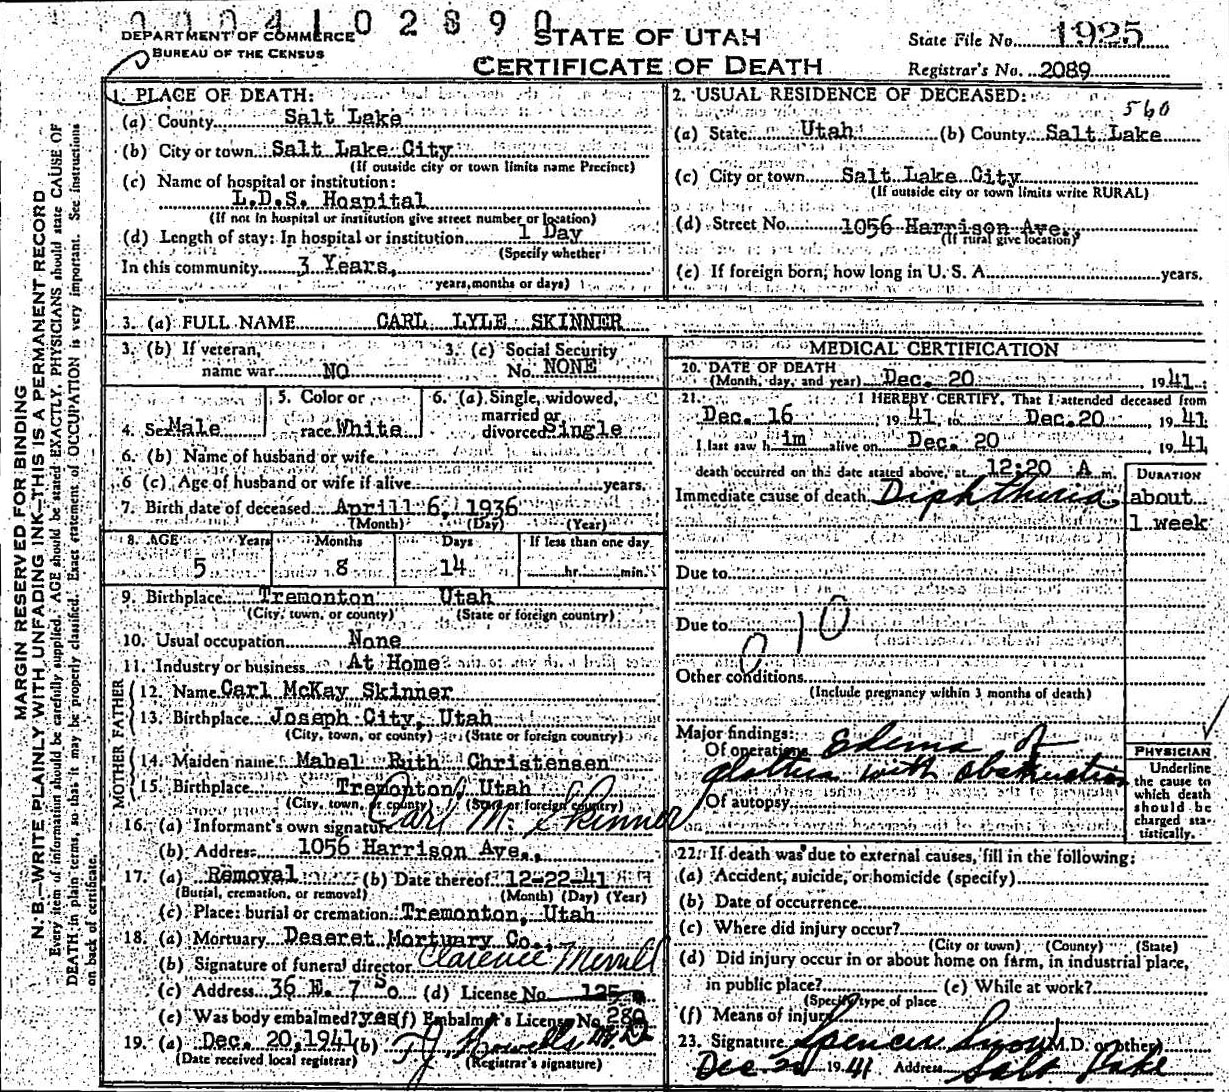 0004102890
DEPARTMENT OF COMMERCE
BUREAU OF THE CENSUS
STATE OF UTAH
CERTIFICATE OF DEATH
State File No. 1925
Registrar's No. 2089
MARGIN RESERVED FOR BINDING
N. B.—WRITE PLAINLY WITH UNFADING INK—THIS IS A PERMANENT RECORD
Every item of information should be carefully supplied. AGE should be stated EXACTLY. PHYSICIANS should state CAUSE OF
DEATH in plain terms so that it may be properly classified. Exact statement of OCCUPATION is very important. See instructions
on back of certificate.
1. PLACE OF DEATH:
(a) County Salt Lake
(b) City or town Salt Lake City
(If outside city or town limits name Precinct)
(c) Name of hospital or institution:
L.D.S. Hospital
(If not in hospital or institution give street number or location)
(d) Length of stay: In hospital or institution 1 Day
(Specify whether
In this community 3 Years,
years, months or days)
2. USUAL RESIDENCE OF DECEASED:
560
(a) State Utah (b) County Salt Lake
(c) City or town Salt Lake City
(If outside city or town limits write RURAL)
(d) Street No. 1056 Harrison Ave.,
(If rural give location)
(e) If foreign born, how long in U. S. A. years.
3. (a) FULL NAME CARL LYLE SKINNER
3. (b) If veteran, name war NO
3. (c) Social Security No. NONE
4. Sex Male
5. Color or race White
6. (a) Single, widowed, married or divorced Single
6. (b) Name of husband or wife
6 (c) Age of husband or wife if alive years.
7. Birth date of deceased Aprill 6, 1936
(Month) (Day) (Year)
8. AGE Years Months Days If less than one day
5 8 14 hr. min.
9. Birthplace Tremonton Utah
(City, town, or county) (State or foreign country)
10. Usual occupation None
11. Industry or business At Home
FATHER
12. Name Carl McKay Skinner
13. Birthplace Joseph City, Utah
(City, town, or county) (State or foreign country)
MOTHER
14. Maiden name Mabel Ruth Christensen
15. Birthplace Tremonton, Utah
(City, town, or county) (State or foreign country)
16. (a) Informant's own signature Carl M. Skinner
(b) Address 1056 Harrison Ave.,
17. (a) Removal (b) Date thereof 12-22-41
(Burial, cremation, or removal) (Month) (Day) (Year)
(c) Place: burial or cremation Tremonton, Utah
18. (a) Mortuary Deseret Mortuary Co.,
(b) Signature of funeral director Clarence Merrill
(c) Address 36 E. 7 So (d) License No. 125
(e) Was body embalmed? yes (f) Embalmer's License No. 280
19. (a) Dec. 20, 1941 (b) T J Howells M.D.
(Date received local registrar) (Registrar's signature)
MEDICAL CERTIFICATION
20. DATE OF DEATH
(Month, day, and year) Dec. 20, 1941
21. I HEREBY CERTIFY, That I attended deceased from
Dec. 16 1941, to Dec. 20 1941
I last saw him alive on Dec. 20, 1941
death occurred on the date stated above, at 12:20 A m.
Immediate cause of death Diphtheria
DURATION
about
1 week
Due to
Due to
010
Other conditions
(Include pregnancy within 3 months of death)
Major findings:
Of operations Edema of
glottis with obstruction
Of autopsy
PHYSICIAN
Underline
the cause to
which death
should be
charged sta-
tistically.
22. If death was due to external causes, fill in the following:
(a) Accident, suicide, or homicide (specify)
(b) Date of occurrence
(c) Where did injury occur?
(City or town) (County) (State)
(d) Did injury occur in or about home on farm, in industrial place,
in public place? (e) While at work?
(Specify type of place
(f) Means of injury
23. Signature Spencer Snow (M.D. or other)
Dec 20 1941 Address Salt Lake